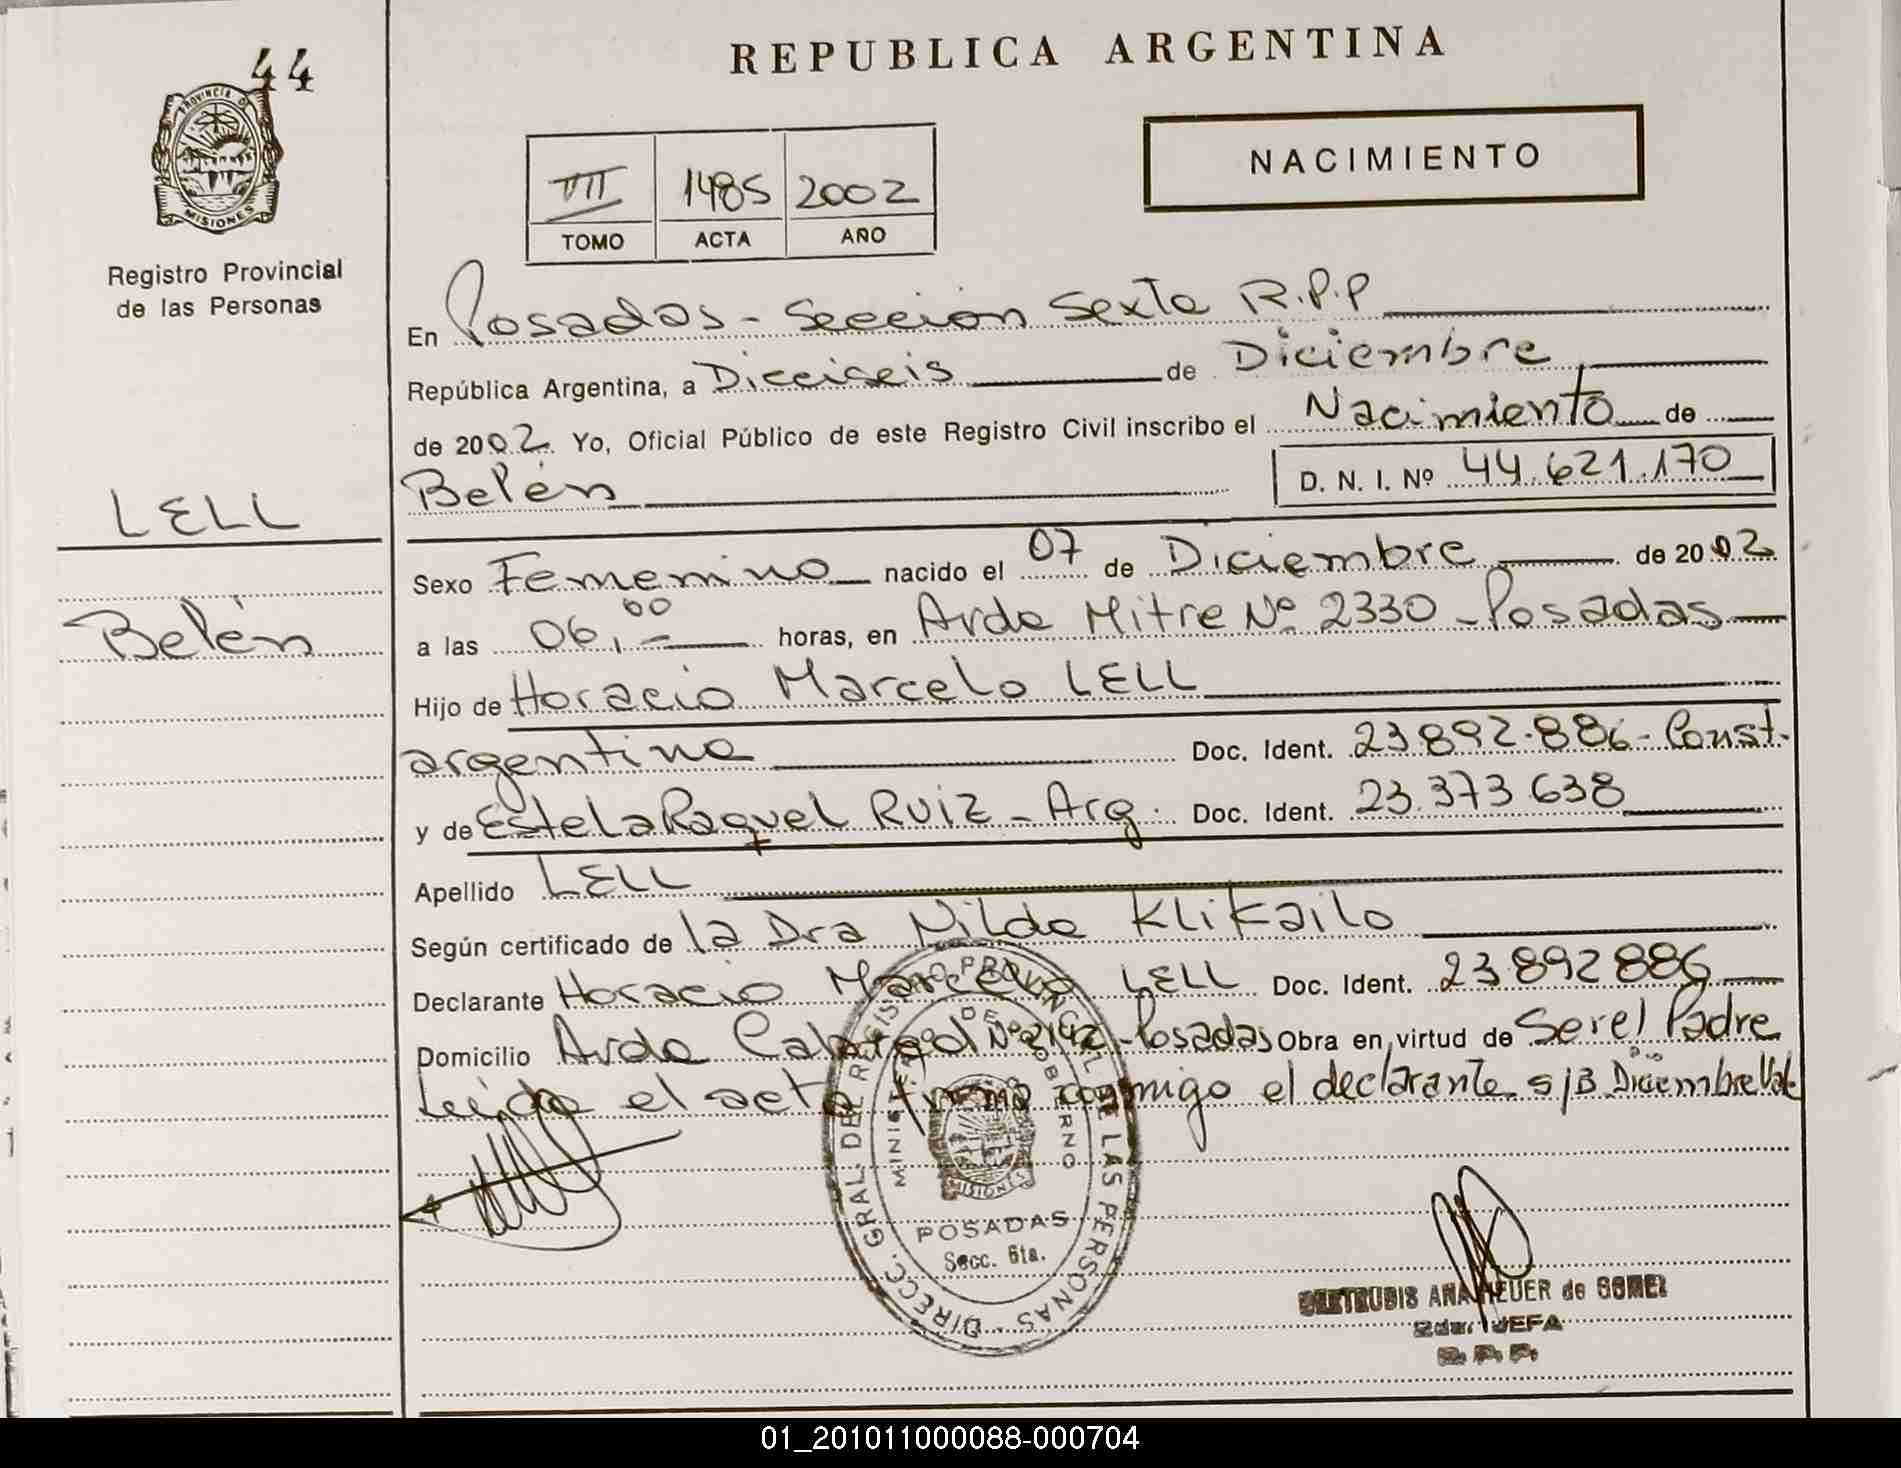 44
PROVINCIA DE
MISIONES
Registro Provincial
de las Personas
LELL
Belén
REPUBLICA ARGENTINA
NACIMIENTO
VII 1485 2002
TOMO ACTA AÑO
En Posadas - Sección Sexta R.P.P
República Argentina, a Dieciseis de Diciembre
de 2002. Yo, Oficial Público de este Registro Civil inscribo el Nacimiento de
Belén D. N. I. Nº 44.621.170
Sexo Femenino nacido el 07 de Diciembre de 2002
a las 06,00 horas, en Avda Mitre Nº 2330 - Posadas
Hijo de Horacio Marcelo LELL
argentino Doc. Ident. 23.892.886 - Const.
y de Estela Raquel RUIZ - Arg. Doc. Ident. 23.373.638
Apellido LELL
Según certificado de la Dra Nilda Klikailo
Declarante Horacio Marcelo LELL Doc. Ident. 23.892.886
Domicilio Avda Nº 2142 - Posadas Obra en virtud de Ser el Padre
Leída el acta firma conmigo el declarante s/B Diciembre Vale
DIRECC. GRAL DEL REGISTRO PROVINCIAL DE LAS PERSONAS
MINISTERIO DE GOBIERNO
MISIONES
POSADAS
Secc. 6ta.
GERTRUDIS ANA HEUER de GOMEZ
2da. JEFA
R. P. P.
01_201011000088-000704